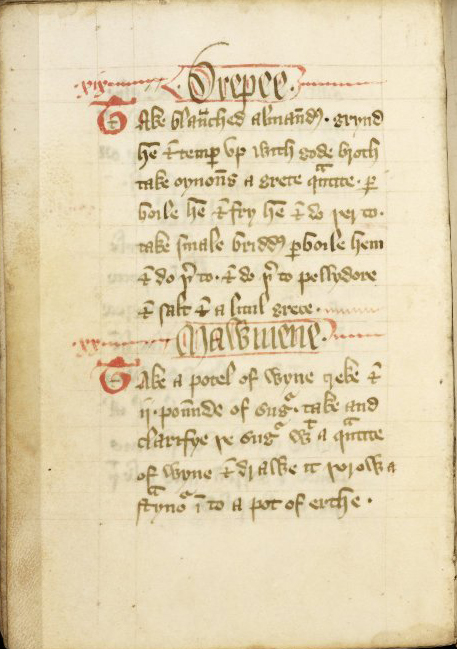 .xix. Drepee.
Take blaunched almandꝭ. grynd
hē ⁊ temꝑ vp with gode broth
take oynoūs a grete qᵃ̄tite. ꝑ
boile hē ⁊ fry hē ⁊ do þer to.
take smale briddꝭ ꝑboile hem
⁊ do þͬ to. ⁊ do þͬ to pellydore
⁊ salt ⁊ a lītul grece.
.xx. Mawmene.
Take a potel of wyne greke ⁊
ii. poūnde of sugʳ. take and
clarifye þe sugʳ wᵗ a qᵃ̄tite
of wyne ⁊ drawe it þorow a
stᵃynoʳ ī to a pot of erthe.